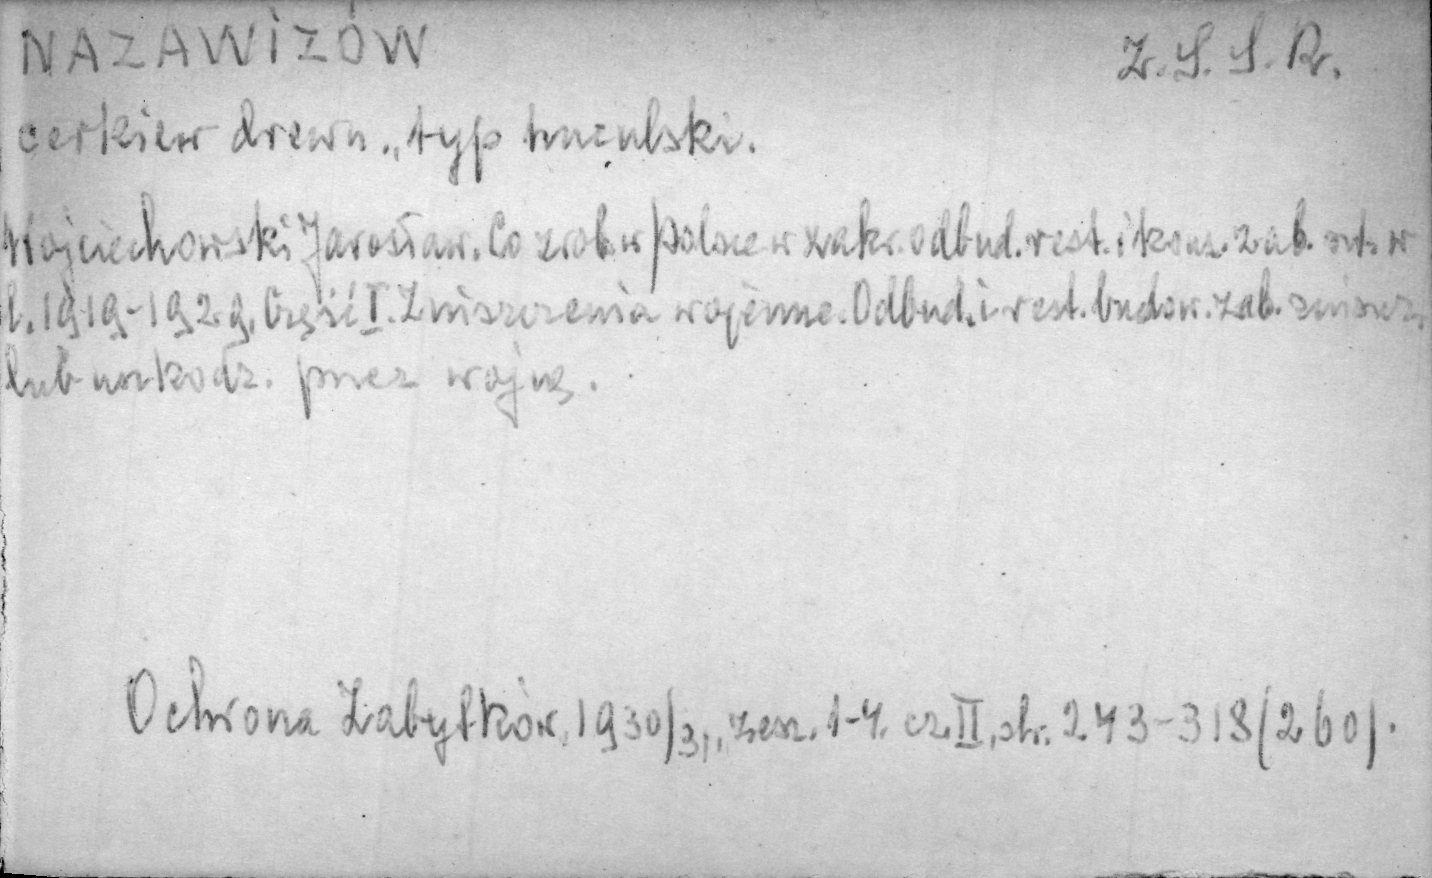 NAZAWIZÓW Z.S.S.R.
cerkiew drewn., typ huculski.
Wojciechowski Jarosław. Co zrob. w Polsce w zakr. odbud. rest. i kons. zab. szt. w
l. 1919-1929. Część I. Zniszczenia wojenne. Odbud. i rest. budow. zab. zniszcz.
lub uszkodz. przez wojnę.
Ochrona Zabytków, 1930/31, zesz. 1-4. cz. II, str. 243-318/260/.